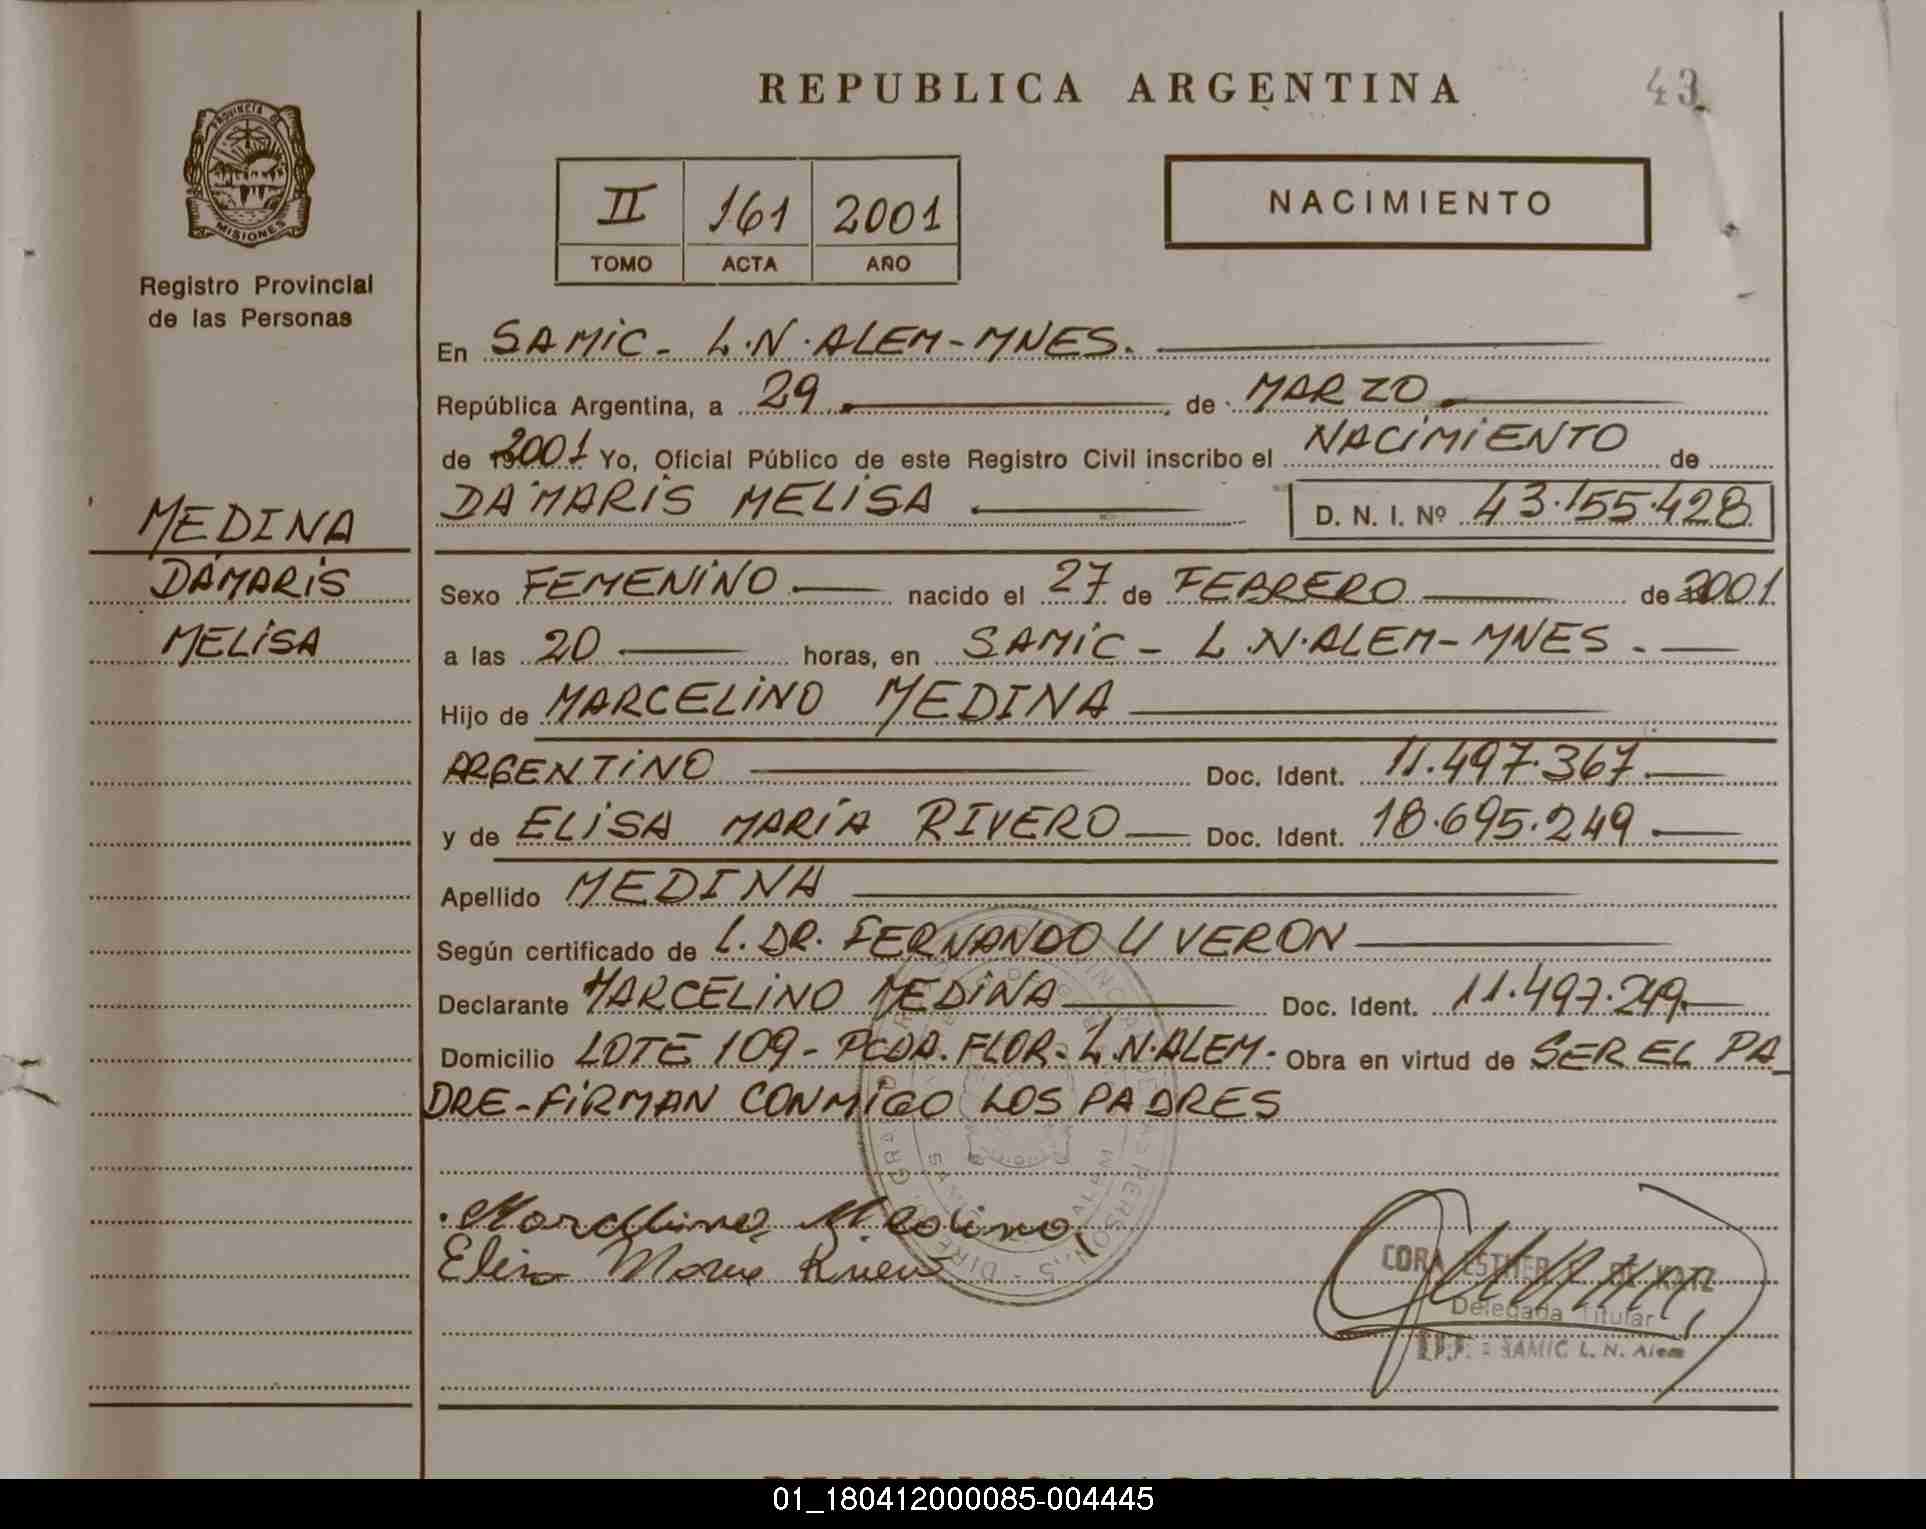 REPUBLICA ARGENTINA
43
PROVINCIA DE
MISIONES
Registro Provincial
de las Personas
II 161 2001
TOMO ACTA AÑO
NACIMIENTO
En SAMIC - L.N. ALEM - MNES.
República Argentina, a 29 de MARZO
de 2001 Yo, Oficial Público de este Registro Civil inscribo el NACIMIENTO de
DÁMARIS MELISA D. N. I. Nº 43.155.428
MEDINA
DÁMARIS
MELISA
Sexo FEMENINO nacido el 27 de FEBRERO de 2001
a las 20 horas, en SAMIC - L.N. ALEM - MNES.
Hijo de MARCELINO MEDINA
ARGENTINO Doc. Ident. 11.497.367
y de ELISA MARÍA RIVERO Doc. Ident. 18.695.249
Apellido MEDINA
Según certificado de L. DR. FERNANDO U VERON
Declarante MARCELINO MEDINA Doc. Ident. 11.497.249
Domicilio LOTE 109 - PCDA. FLOR. L.N. ALEM. Obra en virtud de SER EL PA
DRE - FIRMAN CONMIGO LOS PADRES
Marcelino Medina
Elisa Maria Rivero
CORA ESTHER DE KATZ
Delegada Titular
SAMIC L. N. Alem
01_180412000085-004445